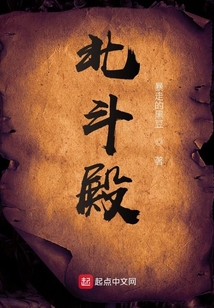 北斗殿
暴走的黑豆 著
起点中文网